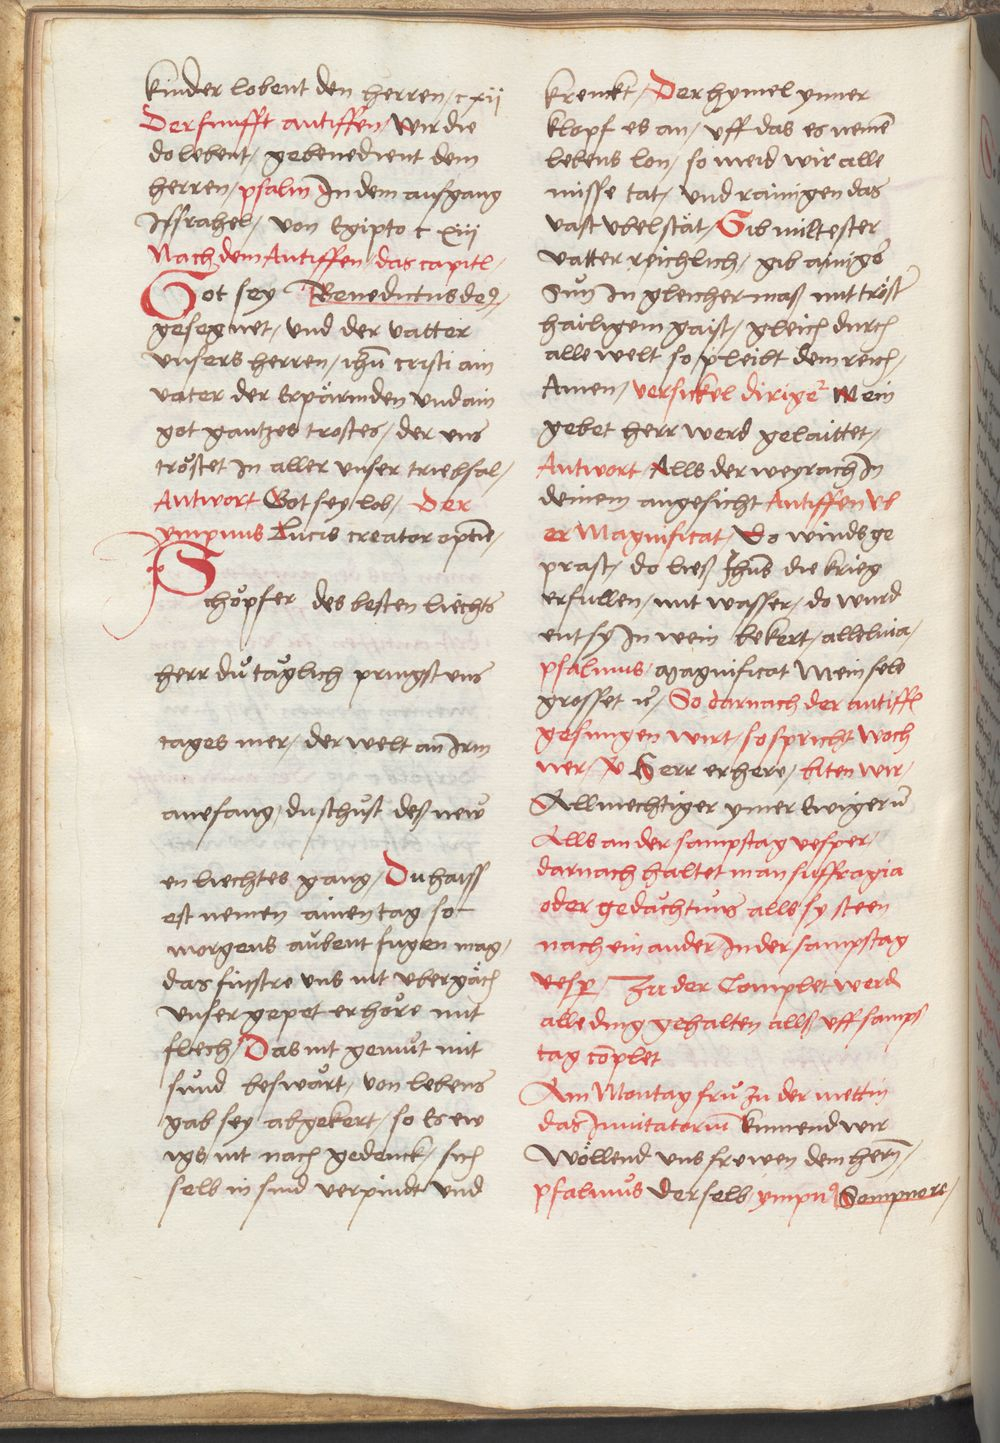 kinder lobent den herren / c xij
Der funfft antiffen / Wir die
do lebent / gebenedient dem
herren / psalm In dem aufgang
Issrahel / von Egipto c xiij
Nach dem Antiffen / das capitl /
Got sey Benedictus de9 /
gesegnet / vnd der vatter
vnsers herren / ihũ cristi ain
vater der Erpärmden vnd ain
got gantzes trostes / der vns
tröstet in aller vnser triebsal /
Antwort Got sey lob / Der
ympnus Lucis creator optĩe /
Schöpfer des besten liechts
herr dů täglich pringst vns
tages mer / der welt an Irm
anefang / du schůst des new
en liechtes gang / Du haiss
est nemen ainen tag so
morgens aubent fugen mag /
das finstre vns nit vbergäch
vnser gepet erhöre mit
flech / Das nit gemůt mit
sůnd beswärt / von lebens
gab sey abgekert / so Es ew
igs nit nach gedenck / sich
selb in sind verpindt vnd
krenckt / Der hymel ynner
klopf es an / vff das es neme
lebens lon / so meid wir alle
misse tat / vnd rainigen das
vast vbelstät / Gib miltester
vatter reichlich / gib ainiger
Sun In gleicher mass mit tröster
hailigem gaist / gleich durch
alle welt so pleibt dem reich /
Amen / versickel dirige2 Mein
gebet herr werd gelaittet /
Antwort Alls der weyrach In
deinem angesicht Antiffen vb
er Magnificat / Do winds ge
prast / do liess Jhũs die krieg
erfullen / mit wasser / do wurd
ent sy In wein bekert / alleluia /
psalmus / Magnificat Mein sele
grosset ꝛc / So darnach der antiffẽ
gesungen wirt / so spricht woch
ner / Herr erhere / biten wir /
Allmechtiger ymer Ewiger ꝛc
Alls an der sampstag vesper /
darnach haltet man suffragia
oder gedächtnus alls sy steen
nach ein ander In der sampstag
vesp Zu der Complet werd
alle ding gehalten alls vff samps
tag cõplet
Am Montag frů zu der mettin
das Inuitatoriũ kumend wir
Wöllend vns frewen dem herñ /
psalmus der selb ympn9 Sompnore /